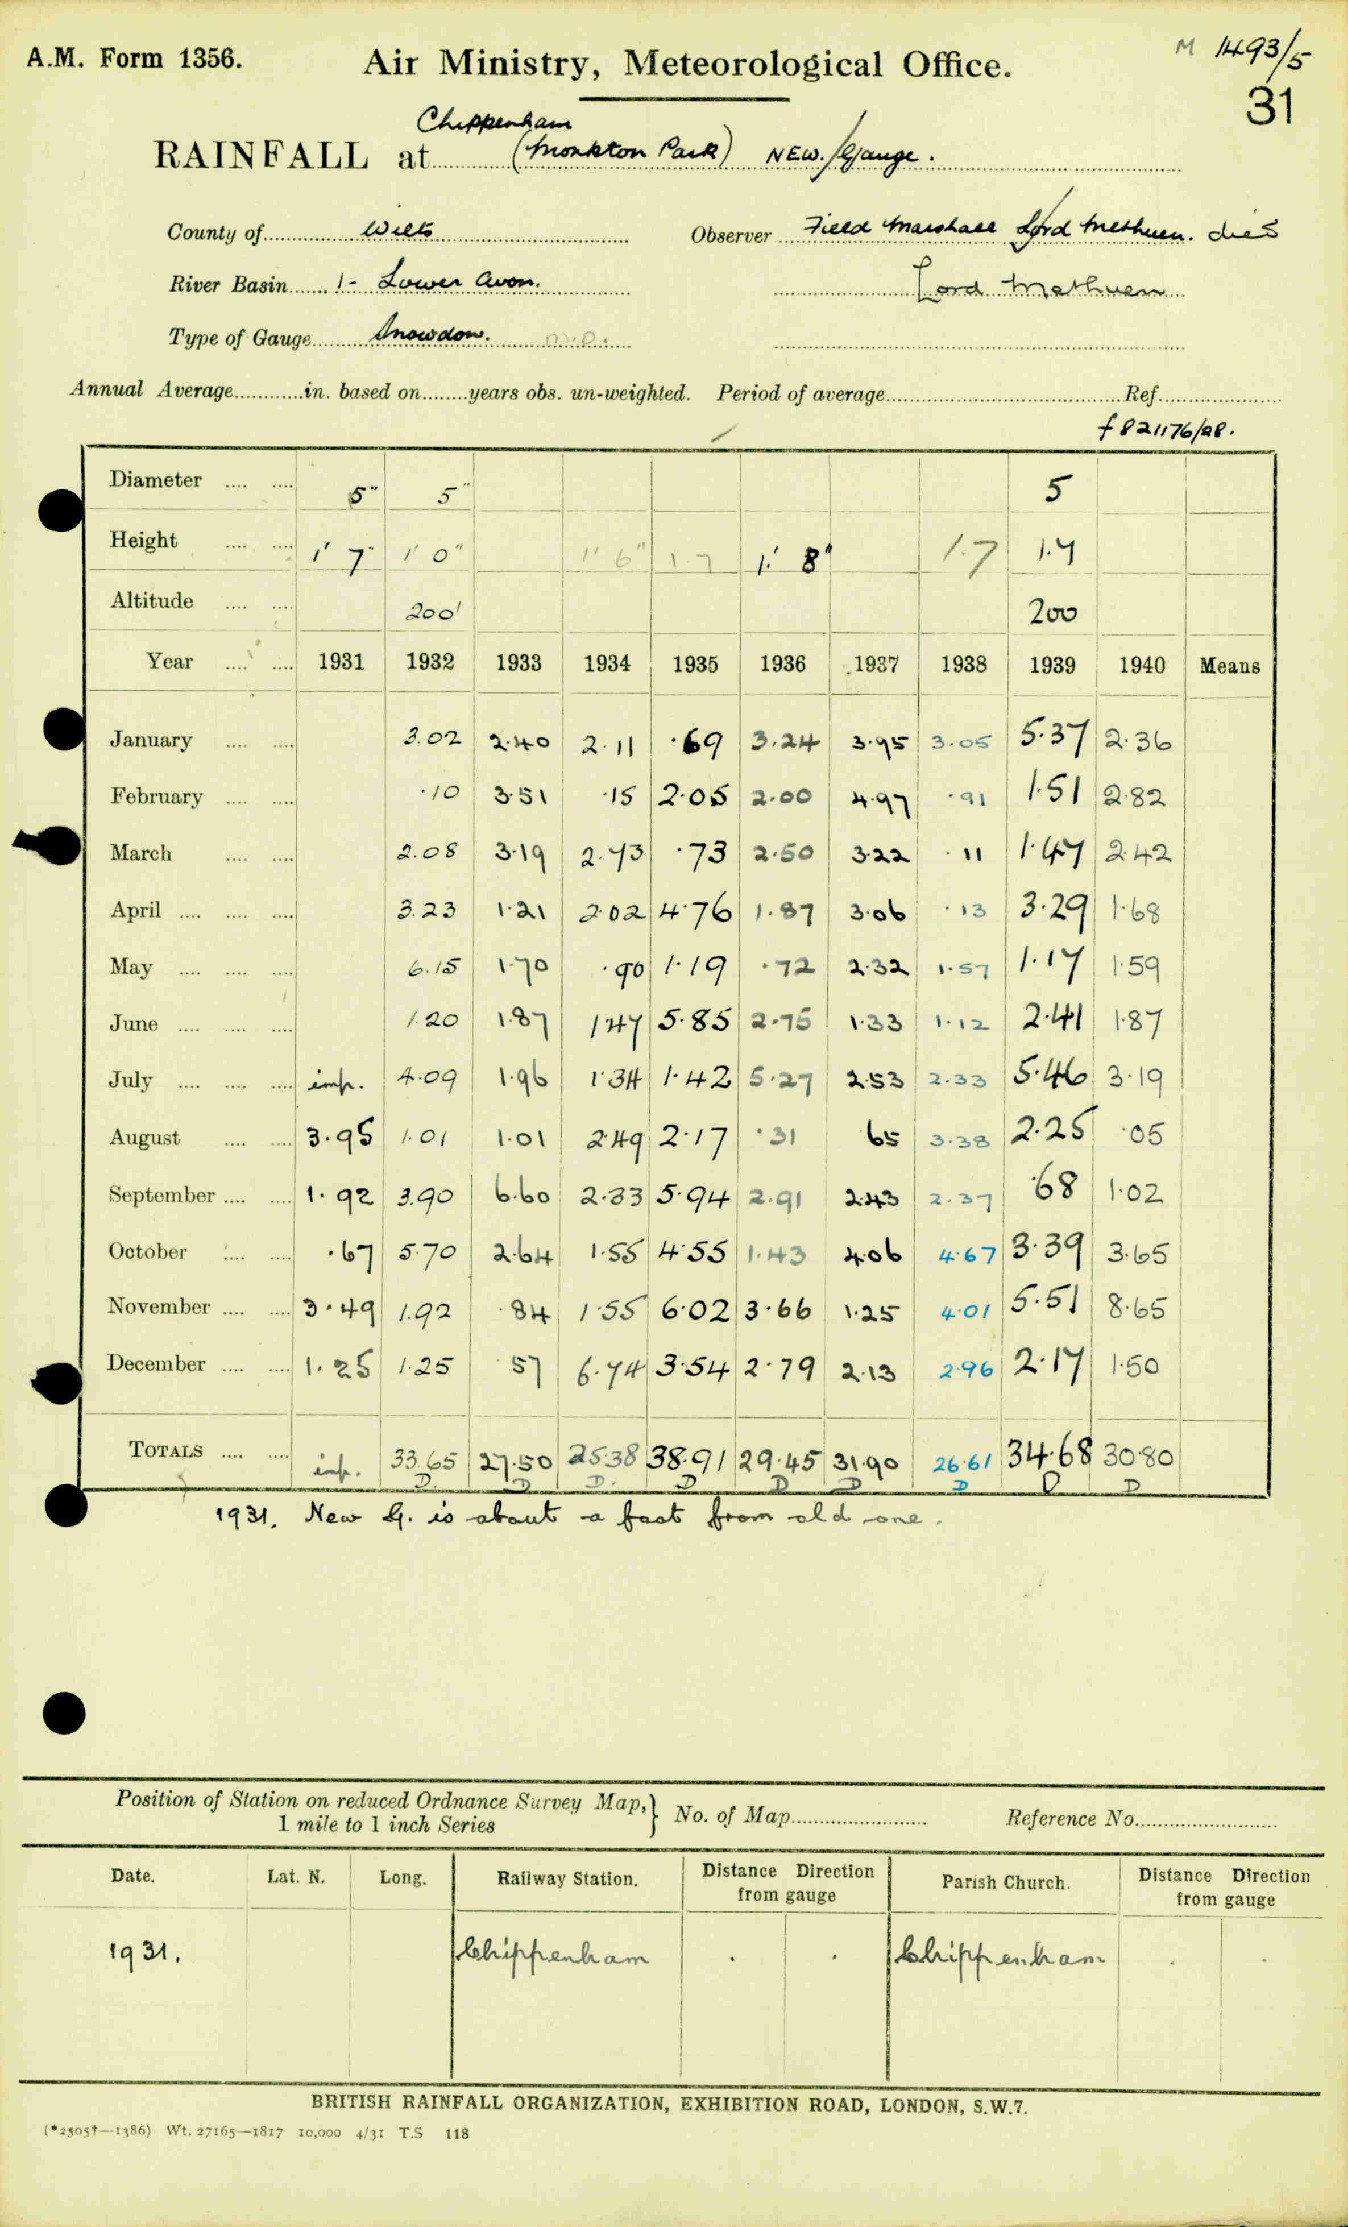 A.M. Form 1356.
Air Ministry, Meteorological Office.
M 1493/5
31
Chippenham
RAINFALL at (Monkton Park) NEW. Gauge.
County of Wilts Observer Field Marshall Lord Methuen. died
River Basin 1- Lower Avon. Lord Methuen
Type of Gauge Snowdon. M.O.
Annual Average in. based on years obs. un-weighted. Period of average Ref.
f 821176/28.
Diameter 5" 5" 5
Height 1' 7" 1' 0" 1' 6" 1 7 1' 8" 1.7 1.7
Altitude 200' 200
Year 1931 1932 1933 1934 1935 1936 1937 1938 1939 1940 Means
January 3.02 2.40 2.11 .69 3.24 3.95 3.05 5.37 2.36
February .10 3.51 .15 2.05 2.00 4.97 .91 1.51 2.82
March 2.08 3.19 2.73 .73 2.50 3.22 .11 1.47 2.42
April 3.23 1.21 2.02 4.76 1.87 3.06 .13 3.29 1.68
May 6.15 1.70 .90 1.19 .72 2.32 1.57 1.17 1.59
June 1.20 1.87 1.47 5.85 2.75 1.33 1.12 2.41 1.87
July imp. 4.09 1.96 1.34 1.42 5.27 2.53 2.33 5.46 3.19
August 3.95 1.01 1.01 2.49 2.17 .31 65 3.38 2.25 .05
September 1.92 3.90 6.60 2.33 5.94 2.91 2.43 2.37 .68 1.02
October .67 5.70 2.64 1.55 4.55 1.43 4.06 4.67 3.39 3.65
November 3.49 1.92 .84 1.55 6.02 3.66 1.25 4.01 5.51 8.65
December 1.25 1.25 57 6.74 3.54 2.79 2.13 2.96 2.17 1.50
TOTALS imp. 33.65 27.50 25.38 38.91 29.45 31.90 26.61 34.68 30.80
D. D D. D D D D D D
1931. New G. is about a foot from old one.
Position of Station on reduced Ordnance Survey Map,
1 mile to 1 inch Series
No. of Map Reference No.
Date. Lat. N. Long. Railway Station. Distance Direction from gauge Parish Church. Distance Direction from gauge
1931. Chippenham . . Chippenham . .
BRITISH RAINFALL ORGANIZATION, EXHIBITION ROAD, LONDON, S.W.7.
(*2505†—1386) Wt. 27165—1817 10,000 4/31 T.S 118